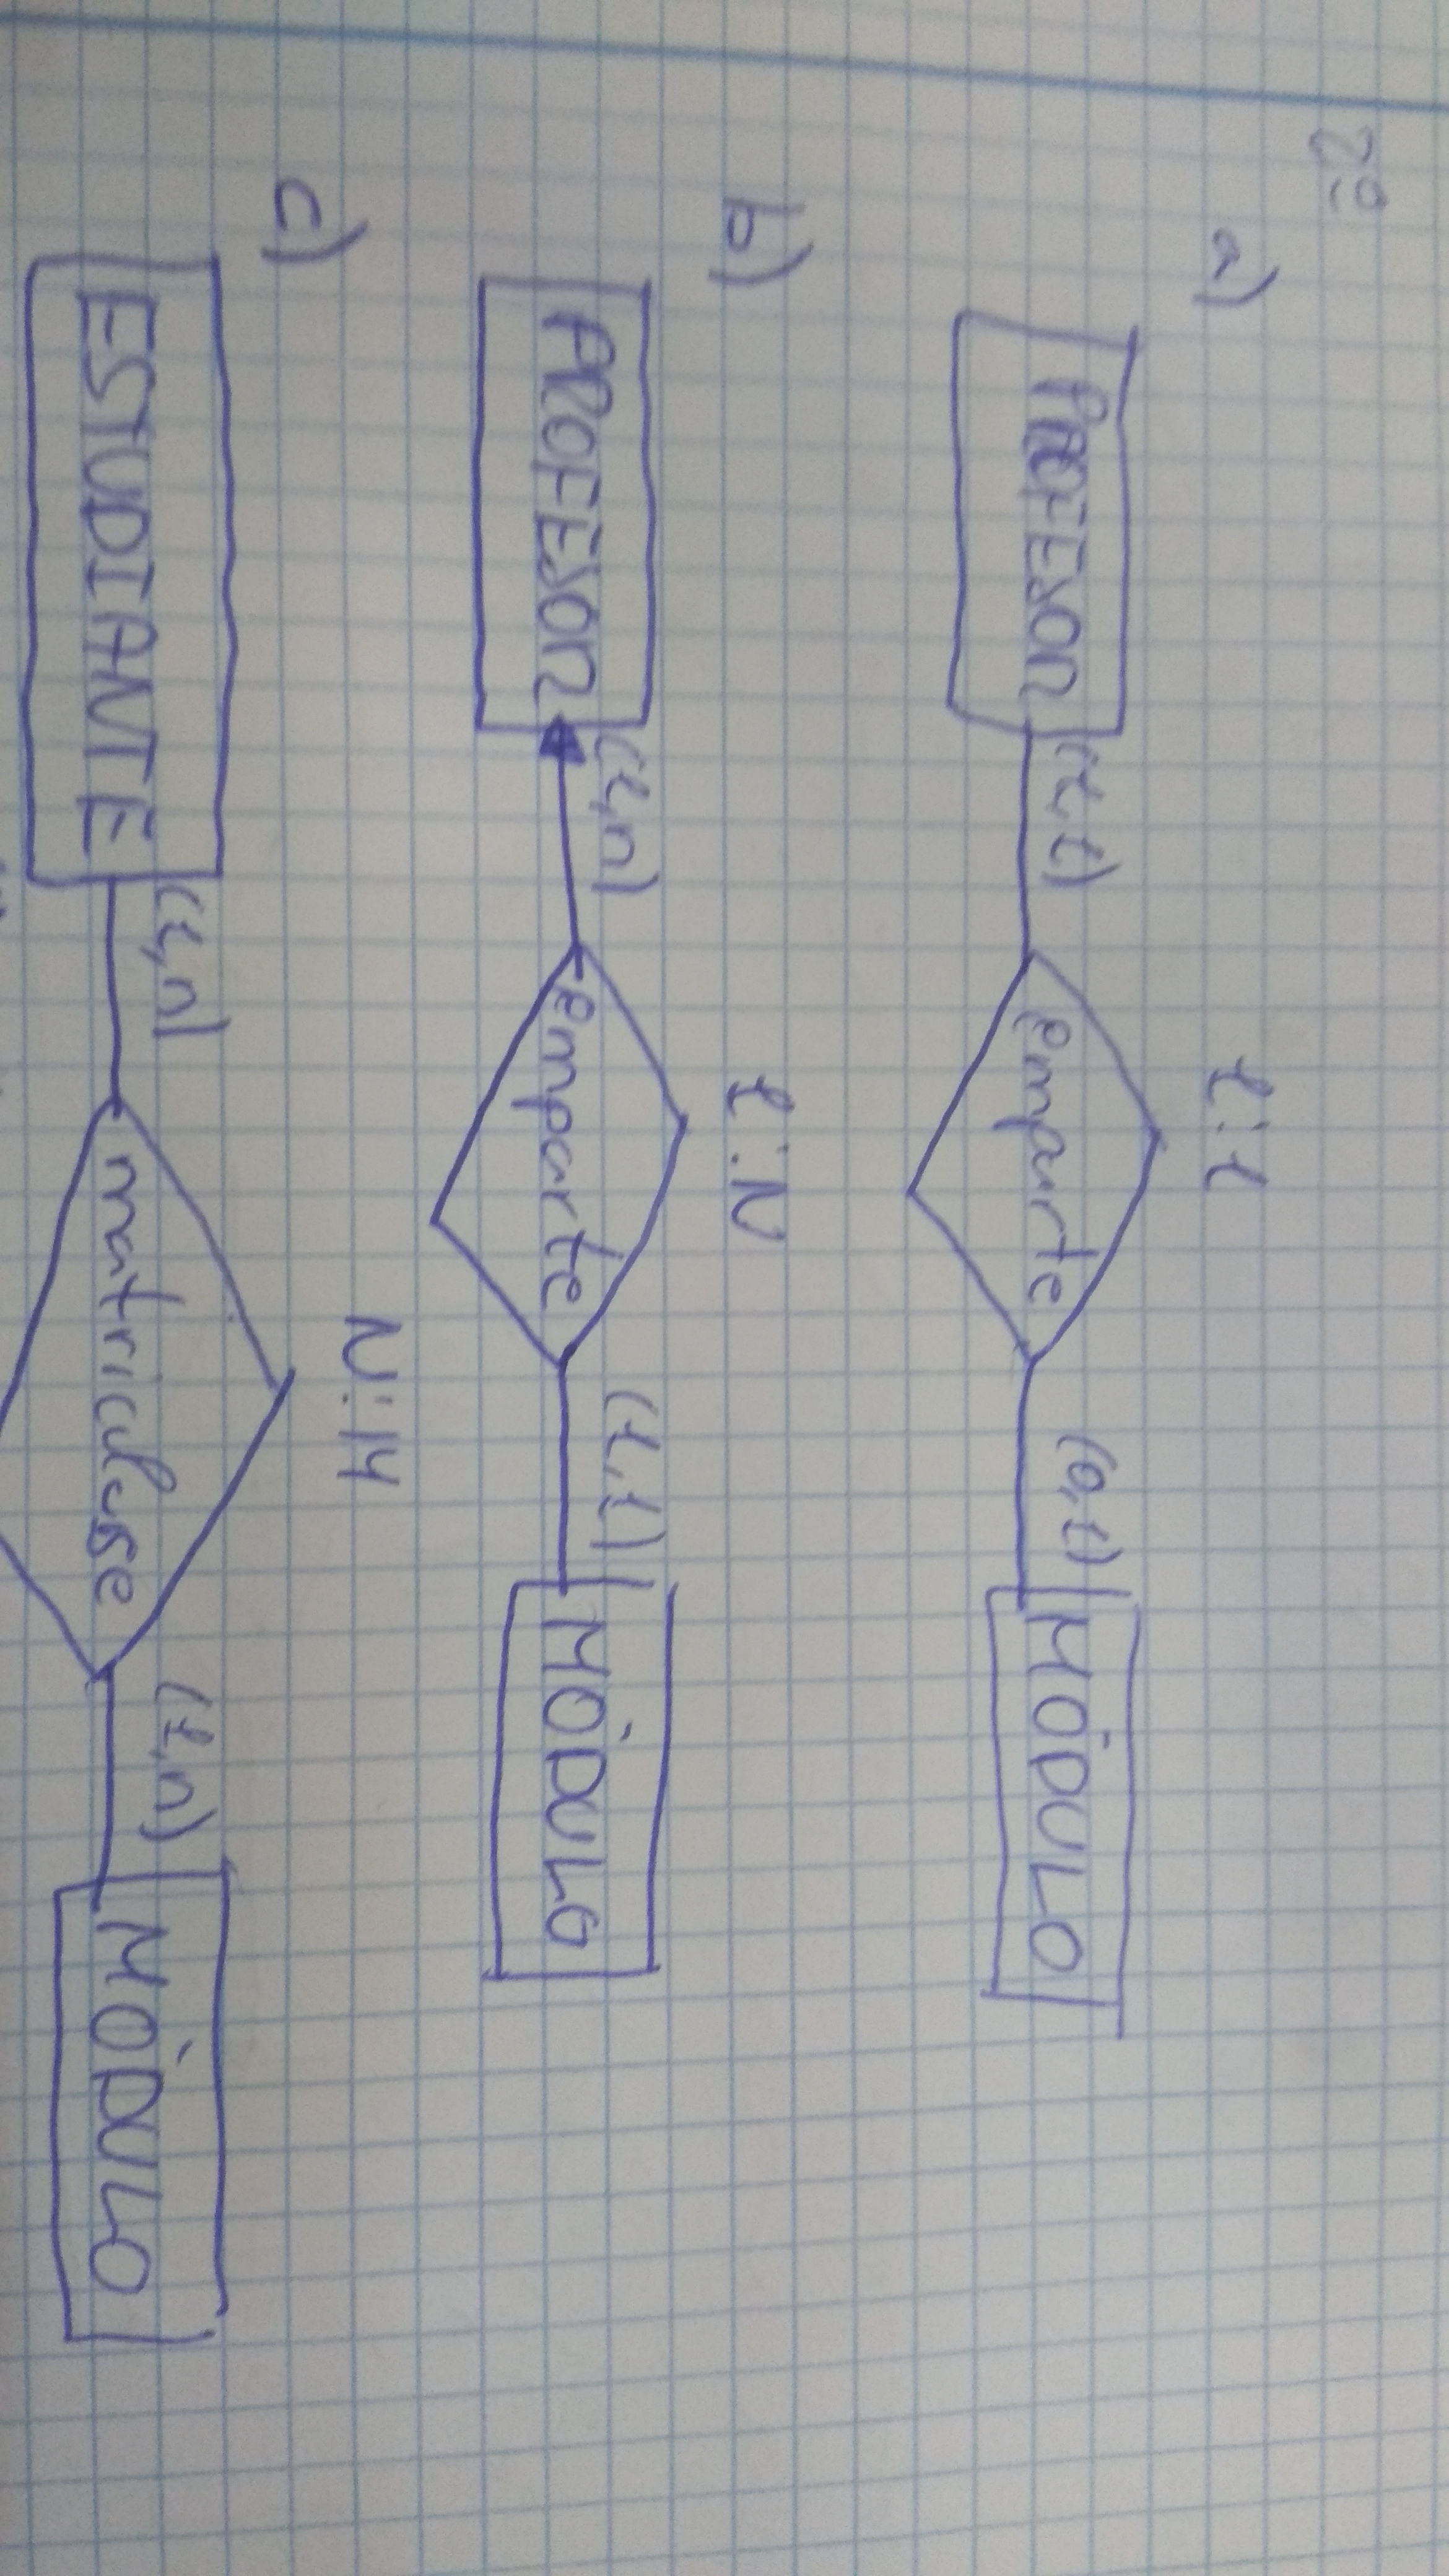 2º
a)
1:1
PROFESOR (1,1) emparte (0,1) MÓDULO
b)
1:N
PROFESOR (1,n) emparte (1,1) MÓDULO
c)
N:M
ESTUDIANTE (1,n) matriculase (1,n) MÓDULO